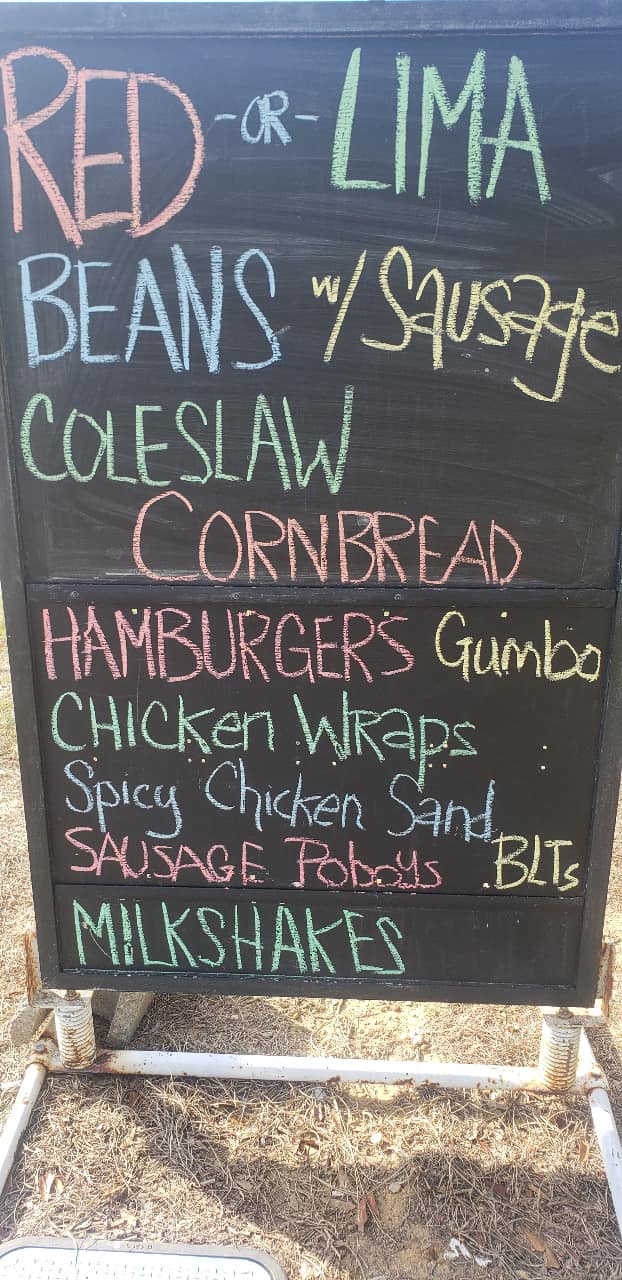 RED -OR- LIMA
BEANS w/ Sausage
COLESLAW
CORNBREAD
HAMBURGERS Gumbo
CHICKen WRaps
Spicy Chicken Sand
SAUSAGE Poboys BLTs
MILKSHAKES